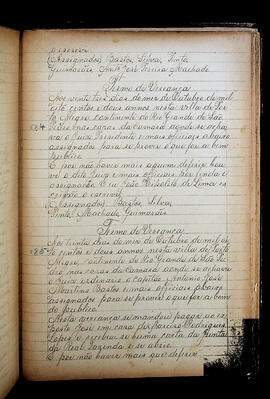 o escrevi
(Assignados) Bastos, Silva, Pinto,
Guimarães, José Pereira Machado
Termo de Vereança
Aos vinte tres dias do mez de Outubro de mil
oito centos e dous annos nesta villa de Por-
to Alegre, continente do Rio Grande de São
Pedro e nas casas da camara aonde se achava
o Juiz Presidente e mais officiaes abaixo
assignados para se prover o que for a bem
publico.
E por não haver mais a quem deferir hou-
ve o dito Juiz e mais officiaes por finda e
assignarão. E eu João Hipolito de Lima es-
crivão o escrevi.
(Assignados) Bastos, Silva,
Pinto, Machado, Guimarães
Termo de Vereança
Aos trinta dias do mez de Outubro de mil oi-
to centos e dous annos nesta villa de Porto
Alegre, continente do Rio Grande de São Pe-
dro nas casas da Camara aonde se achava
o Juiz ordinario o capitão Antonio José
Martins Bastos e mais officiaes abaixo
assignados para se prover o que for a bem
do publico.
Nesta vereança se mandou pagar ao ex-
posto José em casa de Rodrigues
Lopes, e recebeu se huma carta da Junta
da Real Fazenda e se abrio.
E por não haver mais que deferir